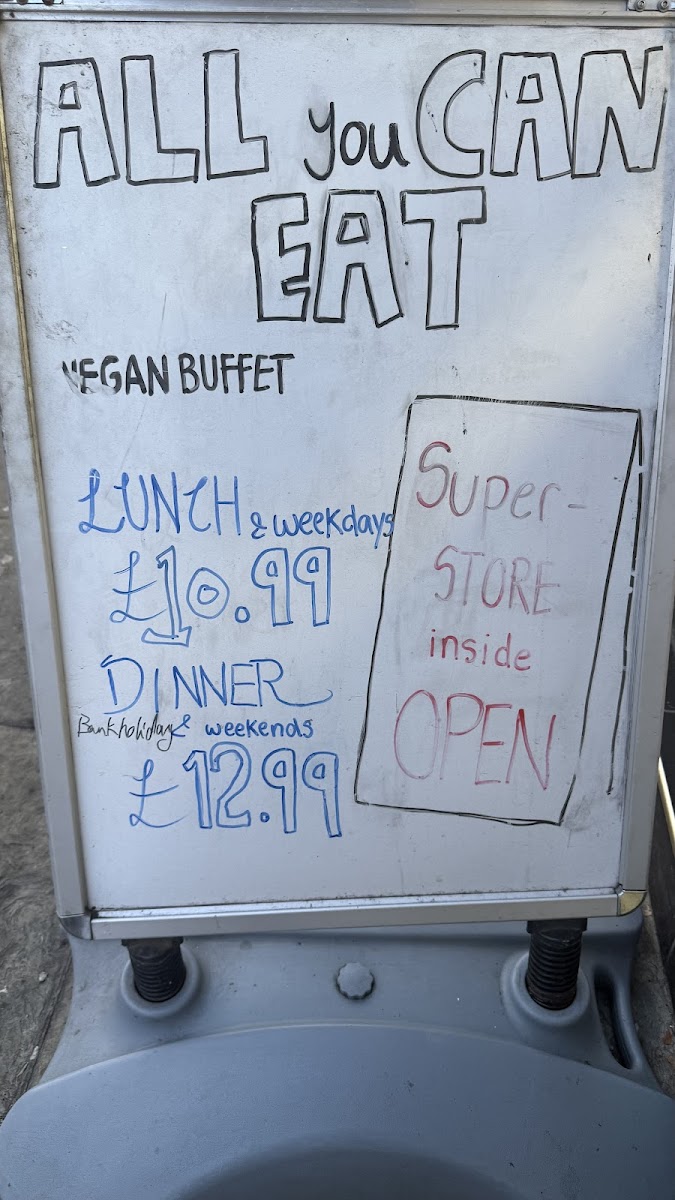 ALL you CAN
EAT
VEGAN BUFFET
LUNCH & weekdays
£10.99
DINNER
Bank holiday & weekends
£12.99
Super-
STORE
inside
OPEN